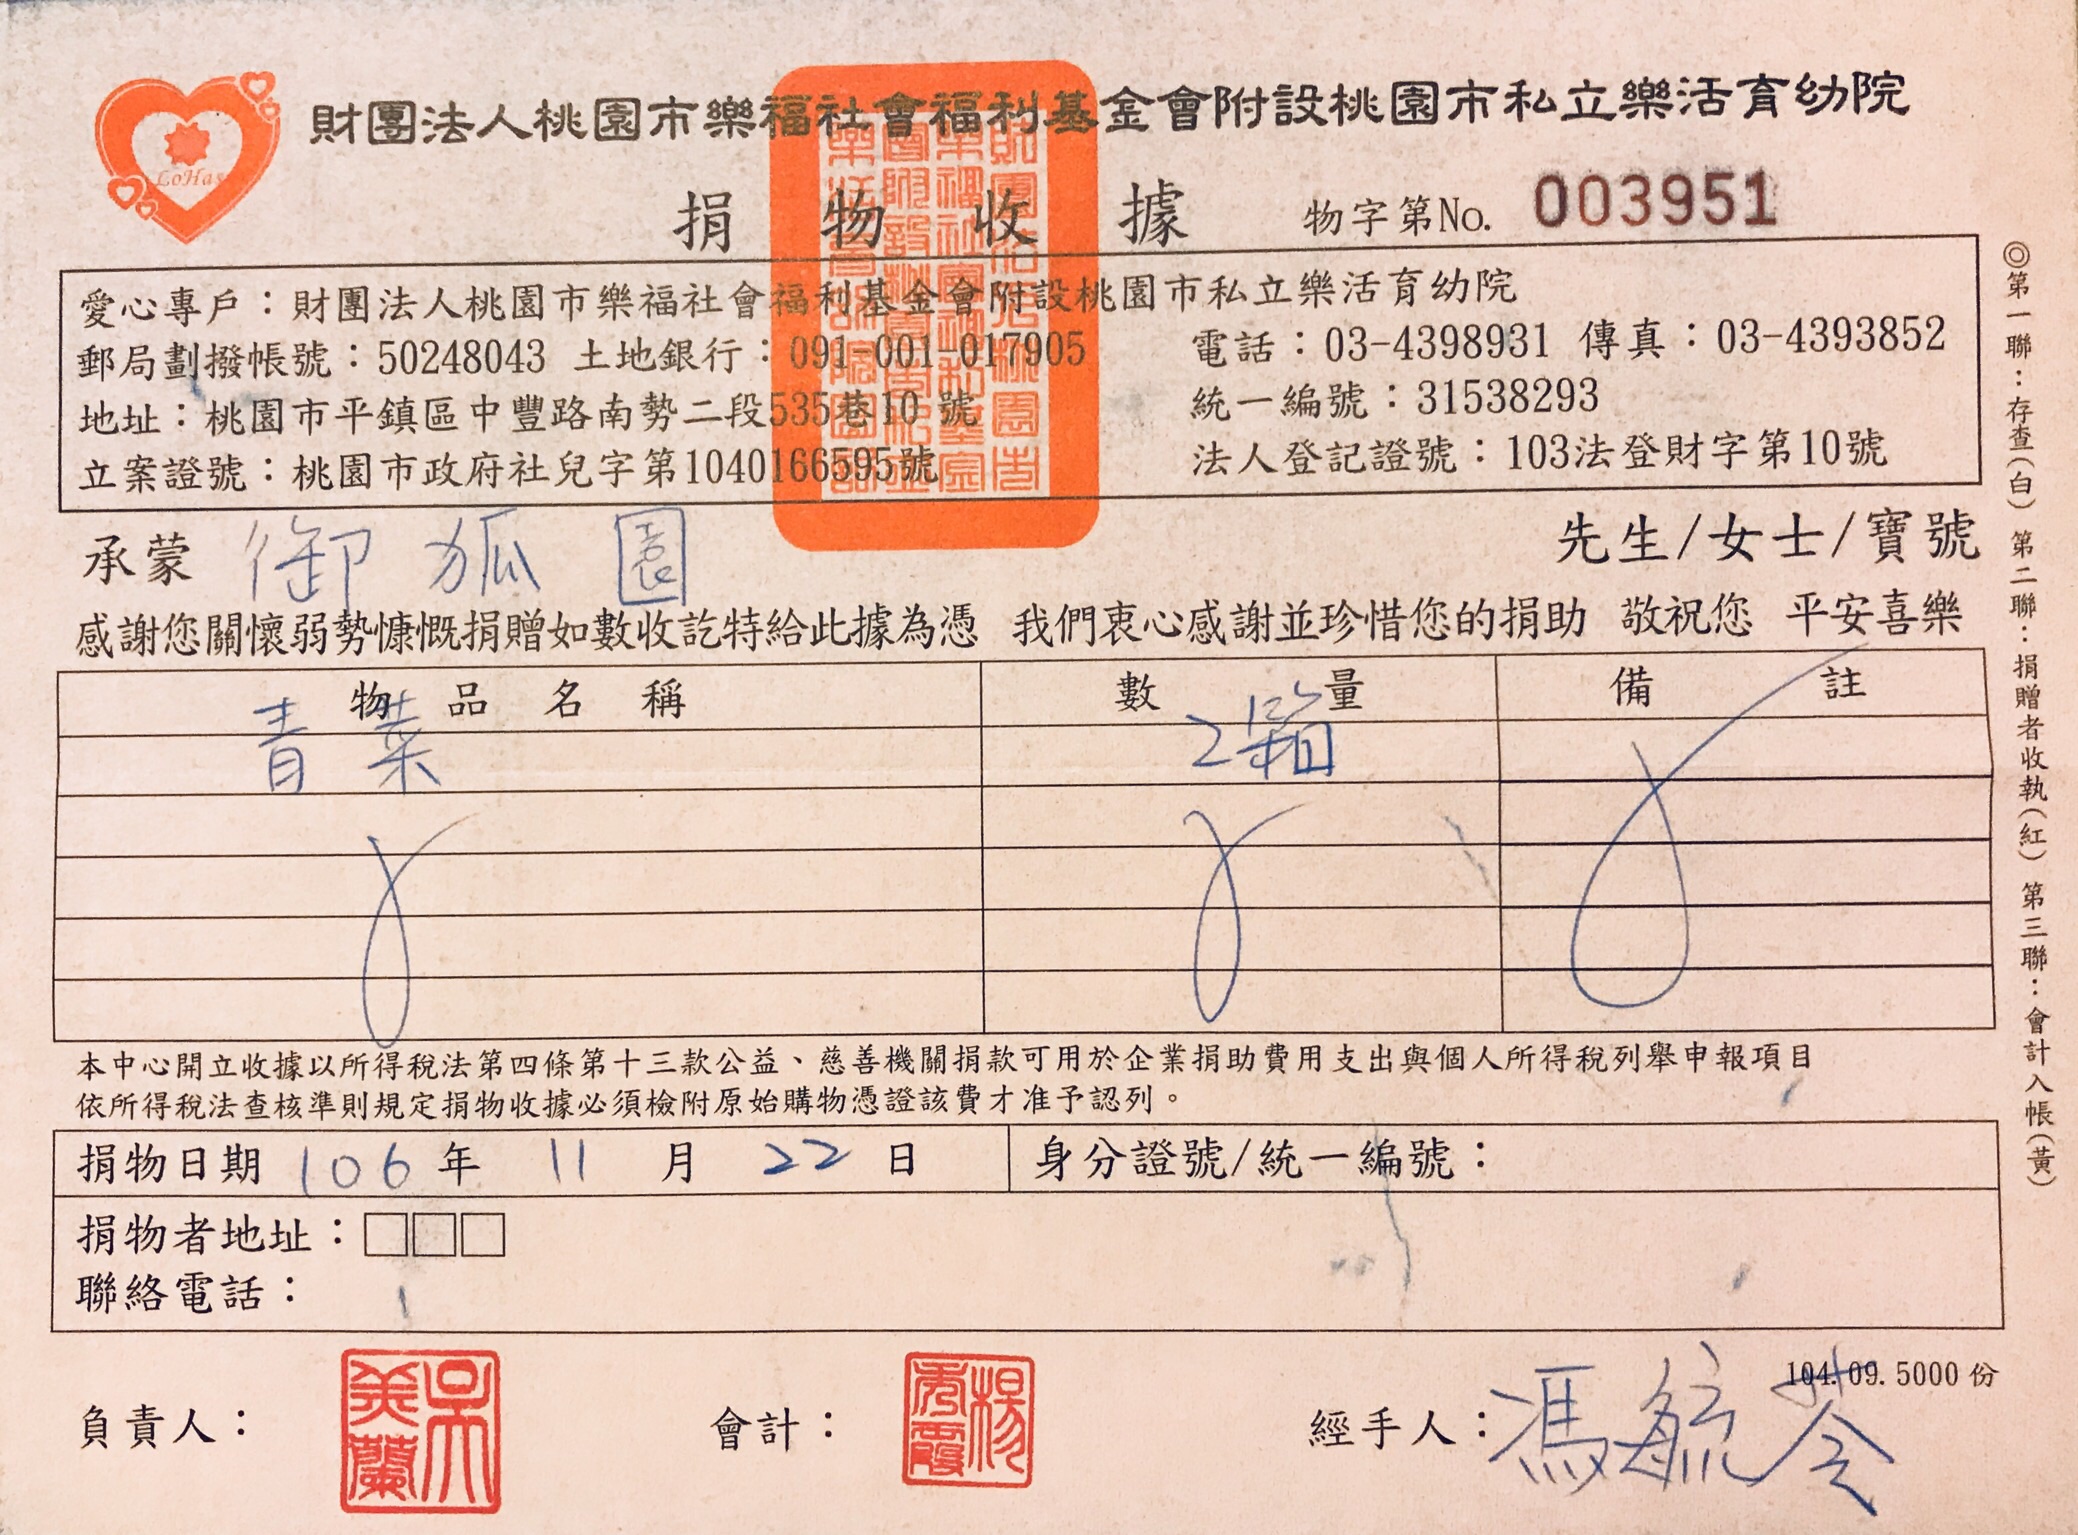 LoHas
財團法人桃園市樂福社會福利基金會附設桃園市私立樂活育幼院
捐物收據 物字第No. 003951
愛心專戶：財團法人桃園市樂福社會福利基金會附設桃園市私立樂活育幼院
郵局劃撥帳號：50248043 土地銀行：091-001-017905 電話：03-4398931 傳真：03-4393852
地址：桃園市平鎮區中豐路南勢二段535巷10號 統一編號：31538293
立案證號：桃園市政府社兒字第1040166595號 法人登記證號：103法登財字第10號
承蒙 御狐園 先生/女士/寶號
感謝您關懷弱勢慷慨捐贈如數收訖特給此據為憑 我們衷心感謝並珍惜您的捐助 敬祝您 平安喜樂
物品名稱 數量 備註
青菜 2箱
本中心開立收據以所得稅法第四條第十三款公益、慈善機關捐款可用於企業捐助費用支出與個人所得稅列舉申報項目
依所得稅法查核準則規定捐物收據必須檢附原始購物憑證該費才准予認列。
捐物日期 106 年 11 月 22 日 身分證號/統一編號：
捐物者地址：□□□
聯絡電話：
104.09.5000份
負責人： 吳美蘭 會計： 楊秀霞 經手人：馮毓苓
◎第一聯：存查(白) 第二聯：捐贈者收執(紅) 第三聯：會計入帳(黃)